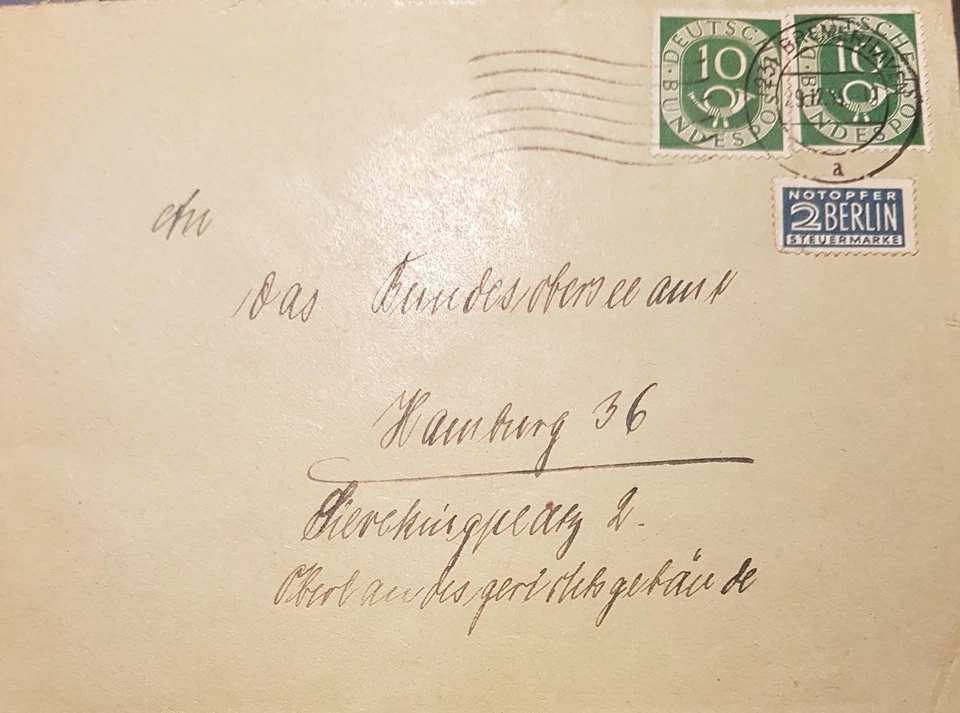 DEUTSCHE BUNDESPOST 10
DEUTSCHE BUNDESPOST 10
(23) BREMERHAVEN
a
NOTOPFER
2 BERLIN
STEUERMARKE
An
das Bundesoberseeamt
Hamburg 36
Sievekingplatz 2.
Oberlandesgerichtsgebäude